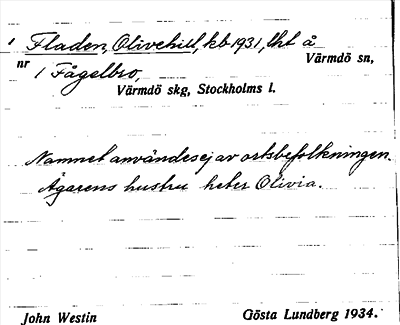 1 Fladen, Olivehill, kb 1931, lht å
nr 1 Fågelbro, Värmdö sn,
Värmdö skg, Stockholms l.
Namnet användes ej av ortsbefolkningen.
Ägarens hustru heter Olivia.
John Westin Gösta Lundberg 1934.